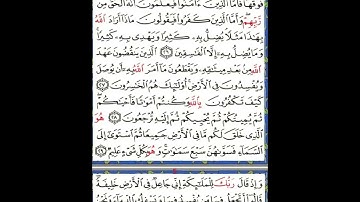 فَوْقَهَا فَأَمَّا الَّذِينَ ءَامَنُوا فَيَعْلَمُونَ أَنَّهُ الْحَقُّ مِن
رَّبِّهِمْ وَأَمَّا الَّذِينَ كَفَرُوا فَيَقُولُونَ مَاذَا أَرَادَ اللَّهُ
بِهَٰذَا مَثَلًا يُضِلُّ بِهِ كَثِيرًا وَيَهْدِي بِهِ كَثِيرًا
وَمَا يُضِلُّ بِهِ إِلَّا الْفَاسِقِينَ ٢٦ الَّذِينَ يَنقُضُونَ عَهْدَ
اللَّهِ مِن بَعْدِ مِيثَاقِهِ وَيَقْطَعُونَ مَا أَمَرَ اللَّهُ بِهِ أَن يُوصَلَ
وَيُفْسِدُونَ فِي الْأَرْضِ أُولَٰئِكَ هُمُ الْخَاسِرُونَ ٢٧
كَيْفَ تَكْفُرُونَ بِاللَّهِ وَكُنتُمْ أَمْوَاتًا فَأَحْيَاكُمْ
ثُمَّ يُمِيتُكُمْ ثُمَّ يُحْيِيكُمْ ثُمَّ إِلَيْهِ تُرْجَعُونَ ٢٨ هُوَ
الَّذِي خَلَقَ لَكُم مَّا فِي الْأَرْضِ جَمِيعًا ثُمَّ اسْتَوَىٰ إِلَى
السَّمَاءِ فَسَوَّاهُنَّ سَبْعَ سَمَاوَاتٍ وَهُوَ بِكُلِّ شَيْءٍ عَلِيمٌ ٢٩
وَإِذْ قَالَ رَبُّكَ لِلْمَلَائِكَةِ إِنِّي جَاعِلٌ فِي الْأَرْضِ خَلِيفَةً